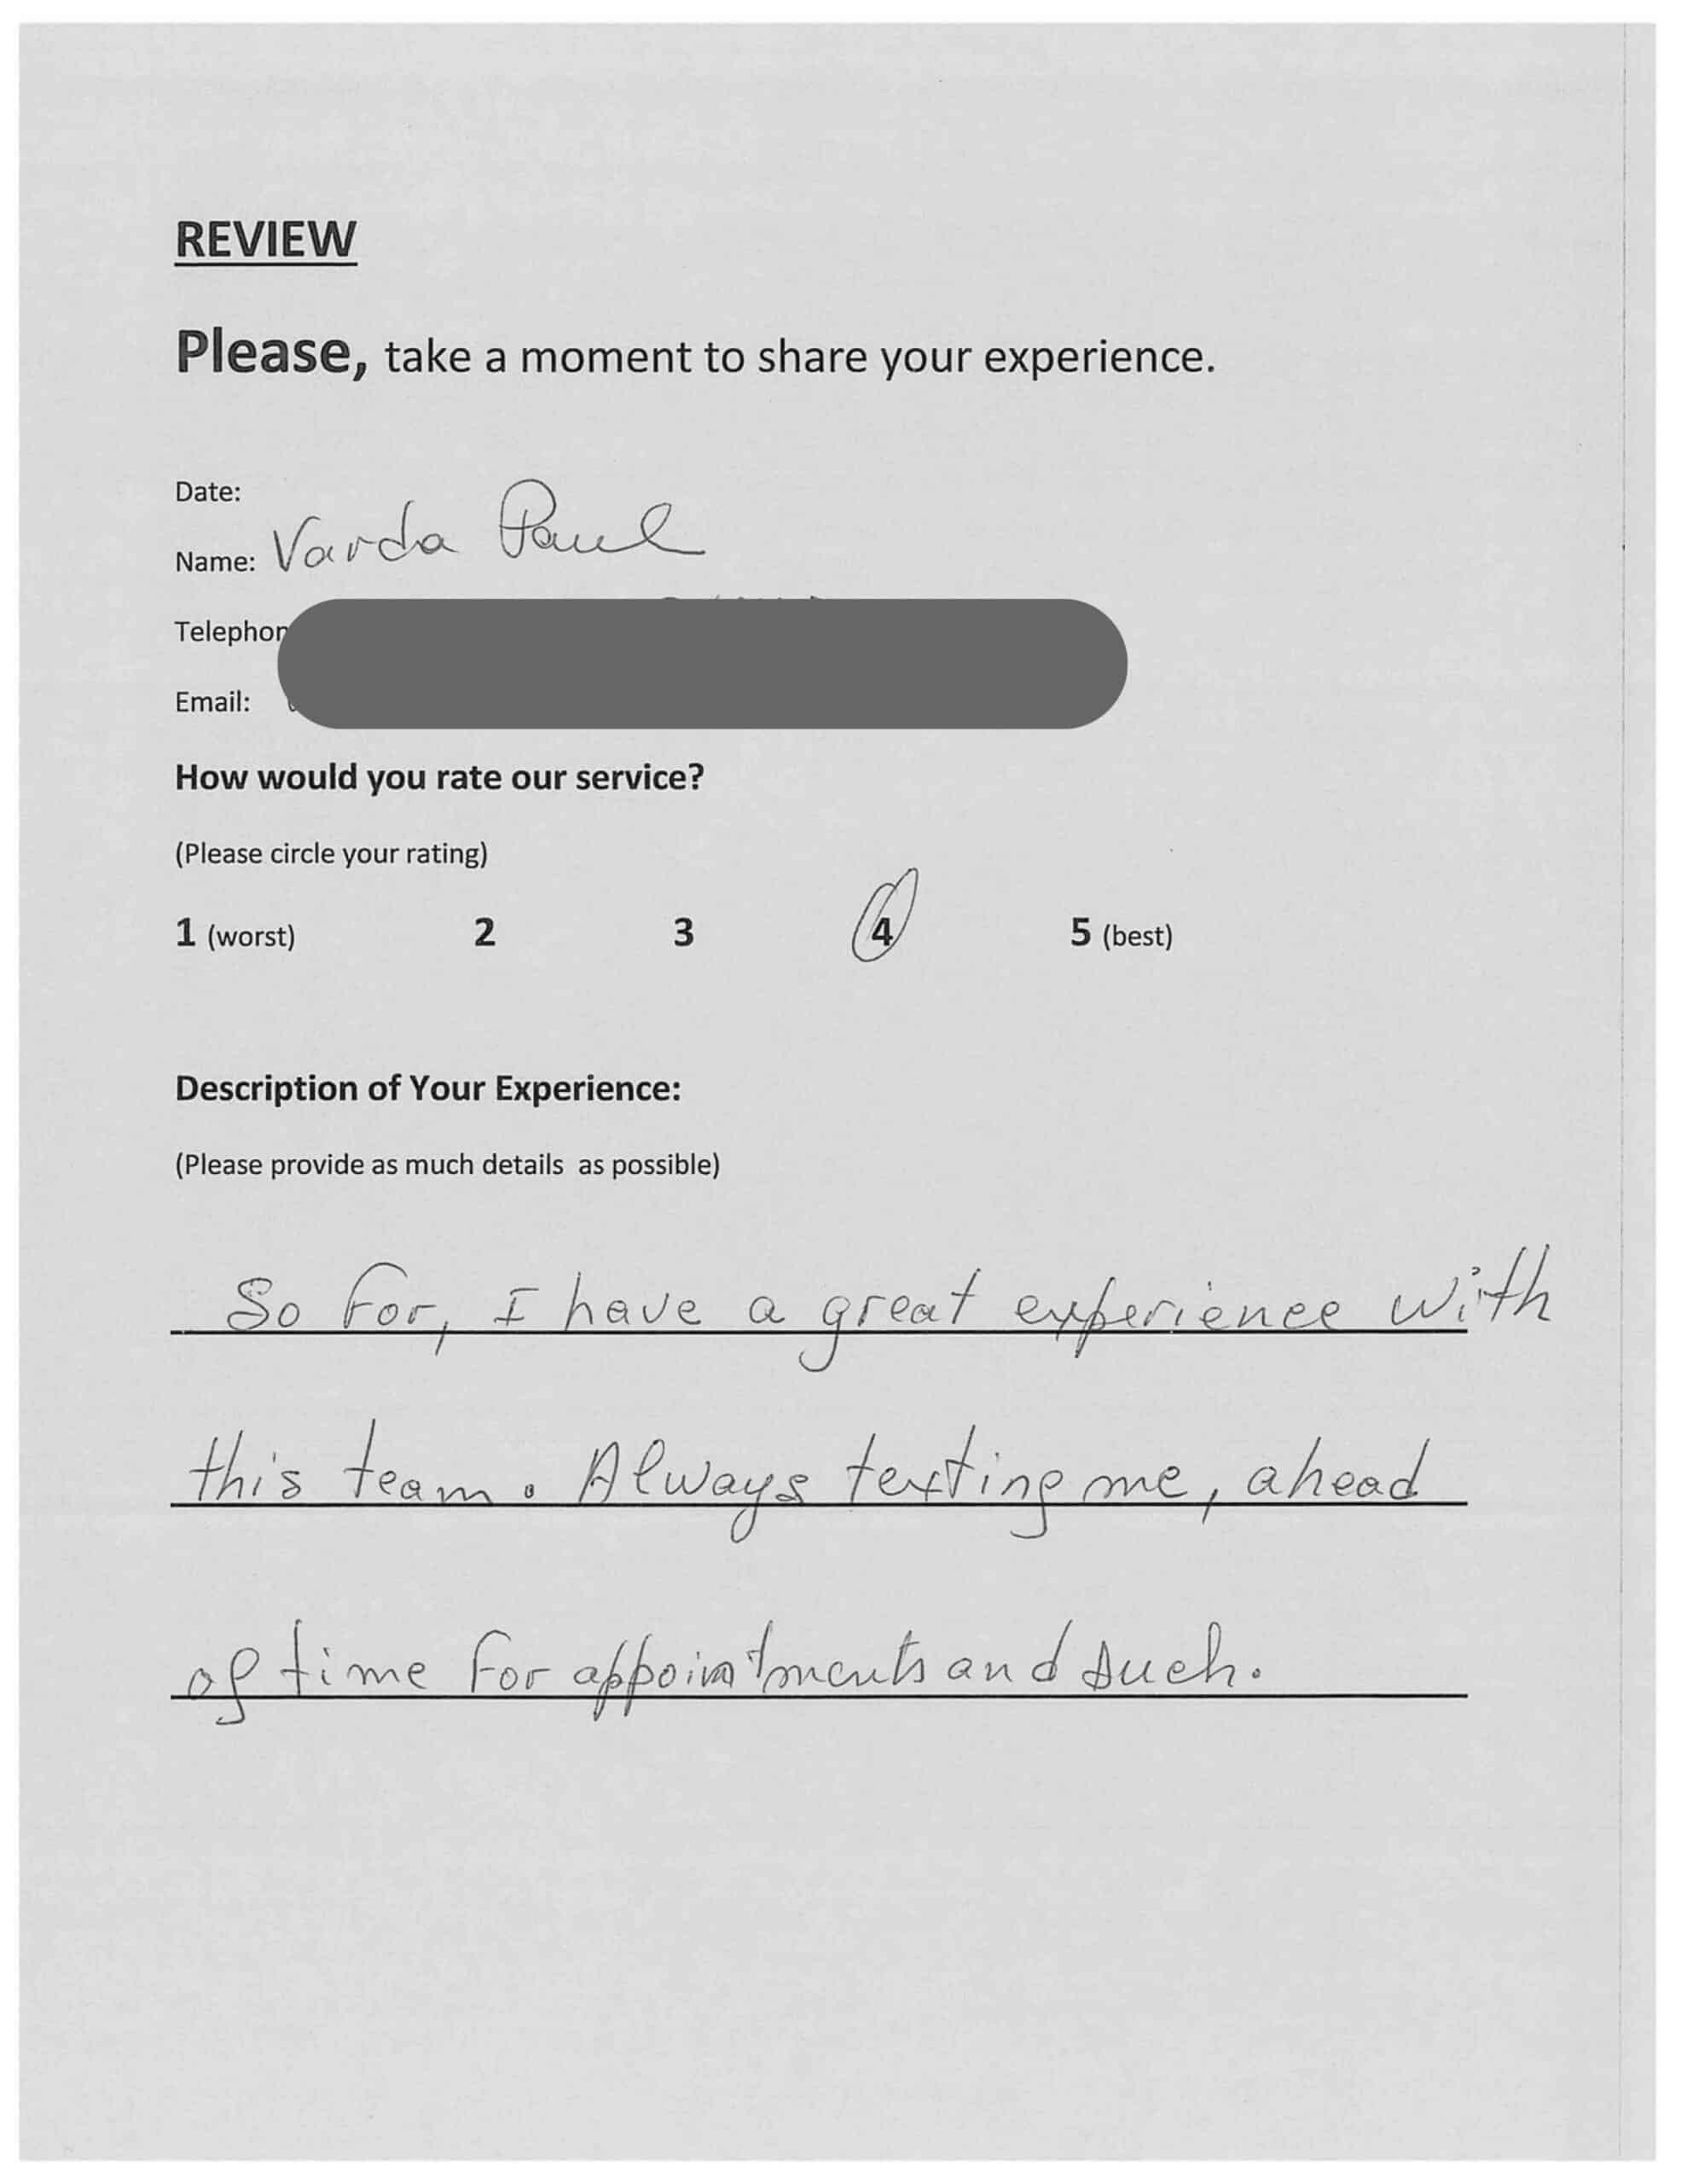 REVIEW
Please, take a moment to share your experience.
Date:
Name: Varda Paul
Telephon
Email:
How would you rate our service?
(Please circle your rating)
1 (worst) 2 3 4 5 (best)
Description of Your Experience:
(Please provide as much details as possible)
So far, I have a great experience with
this team. Always texting me, ahead
of time for appointments and such.